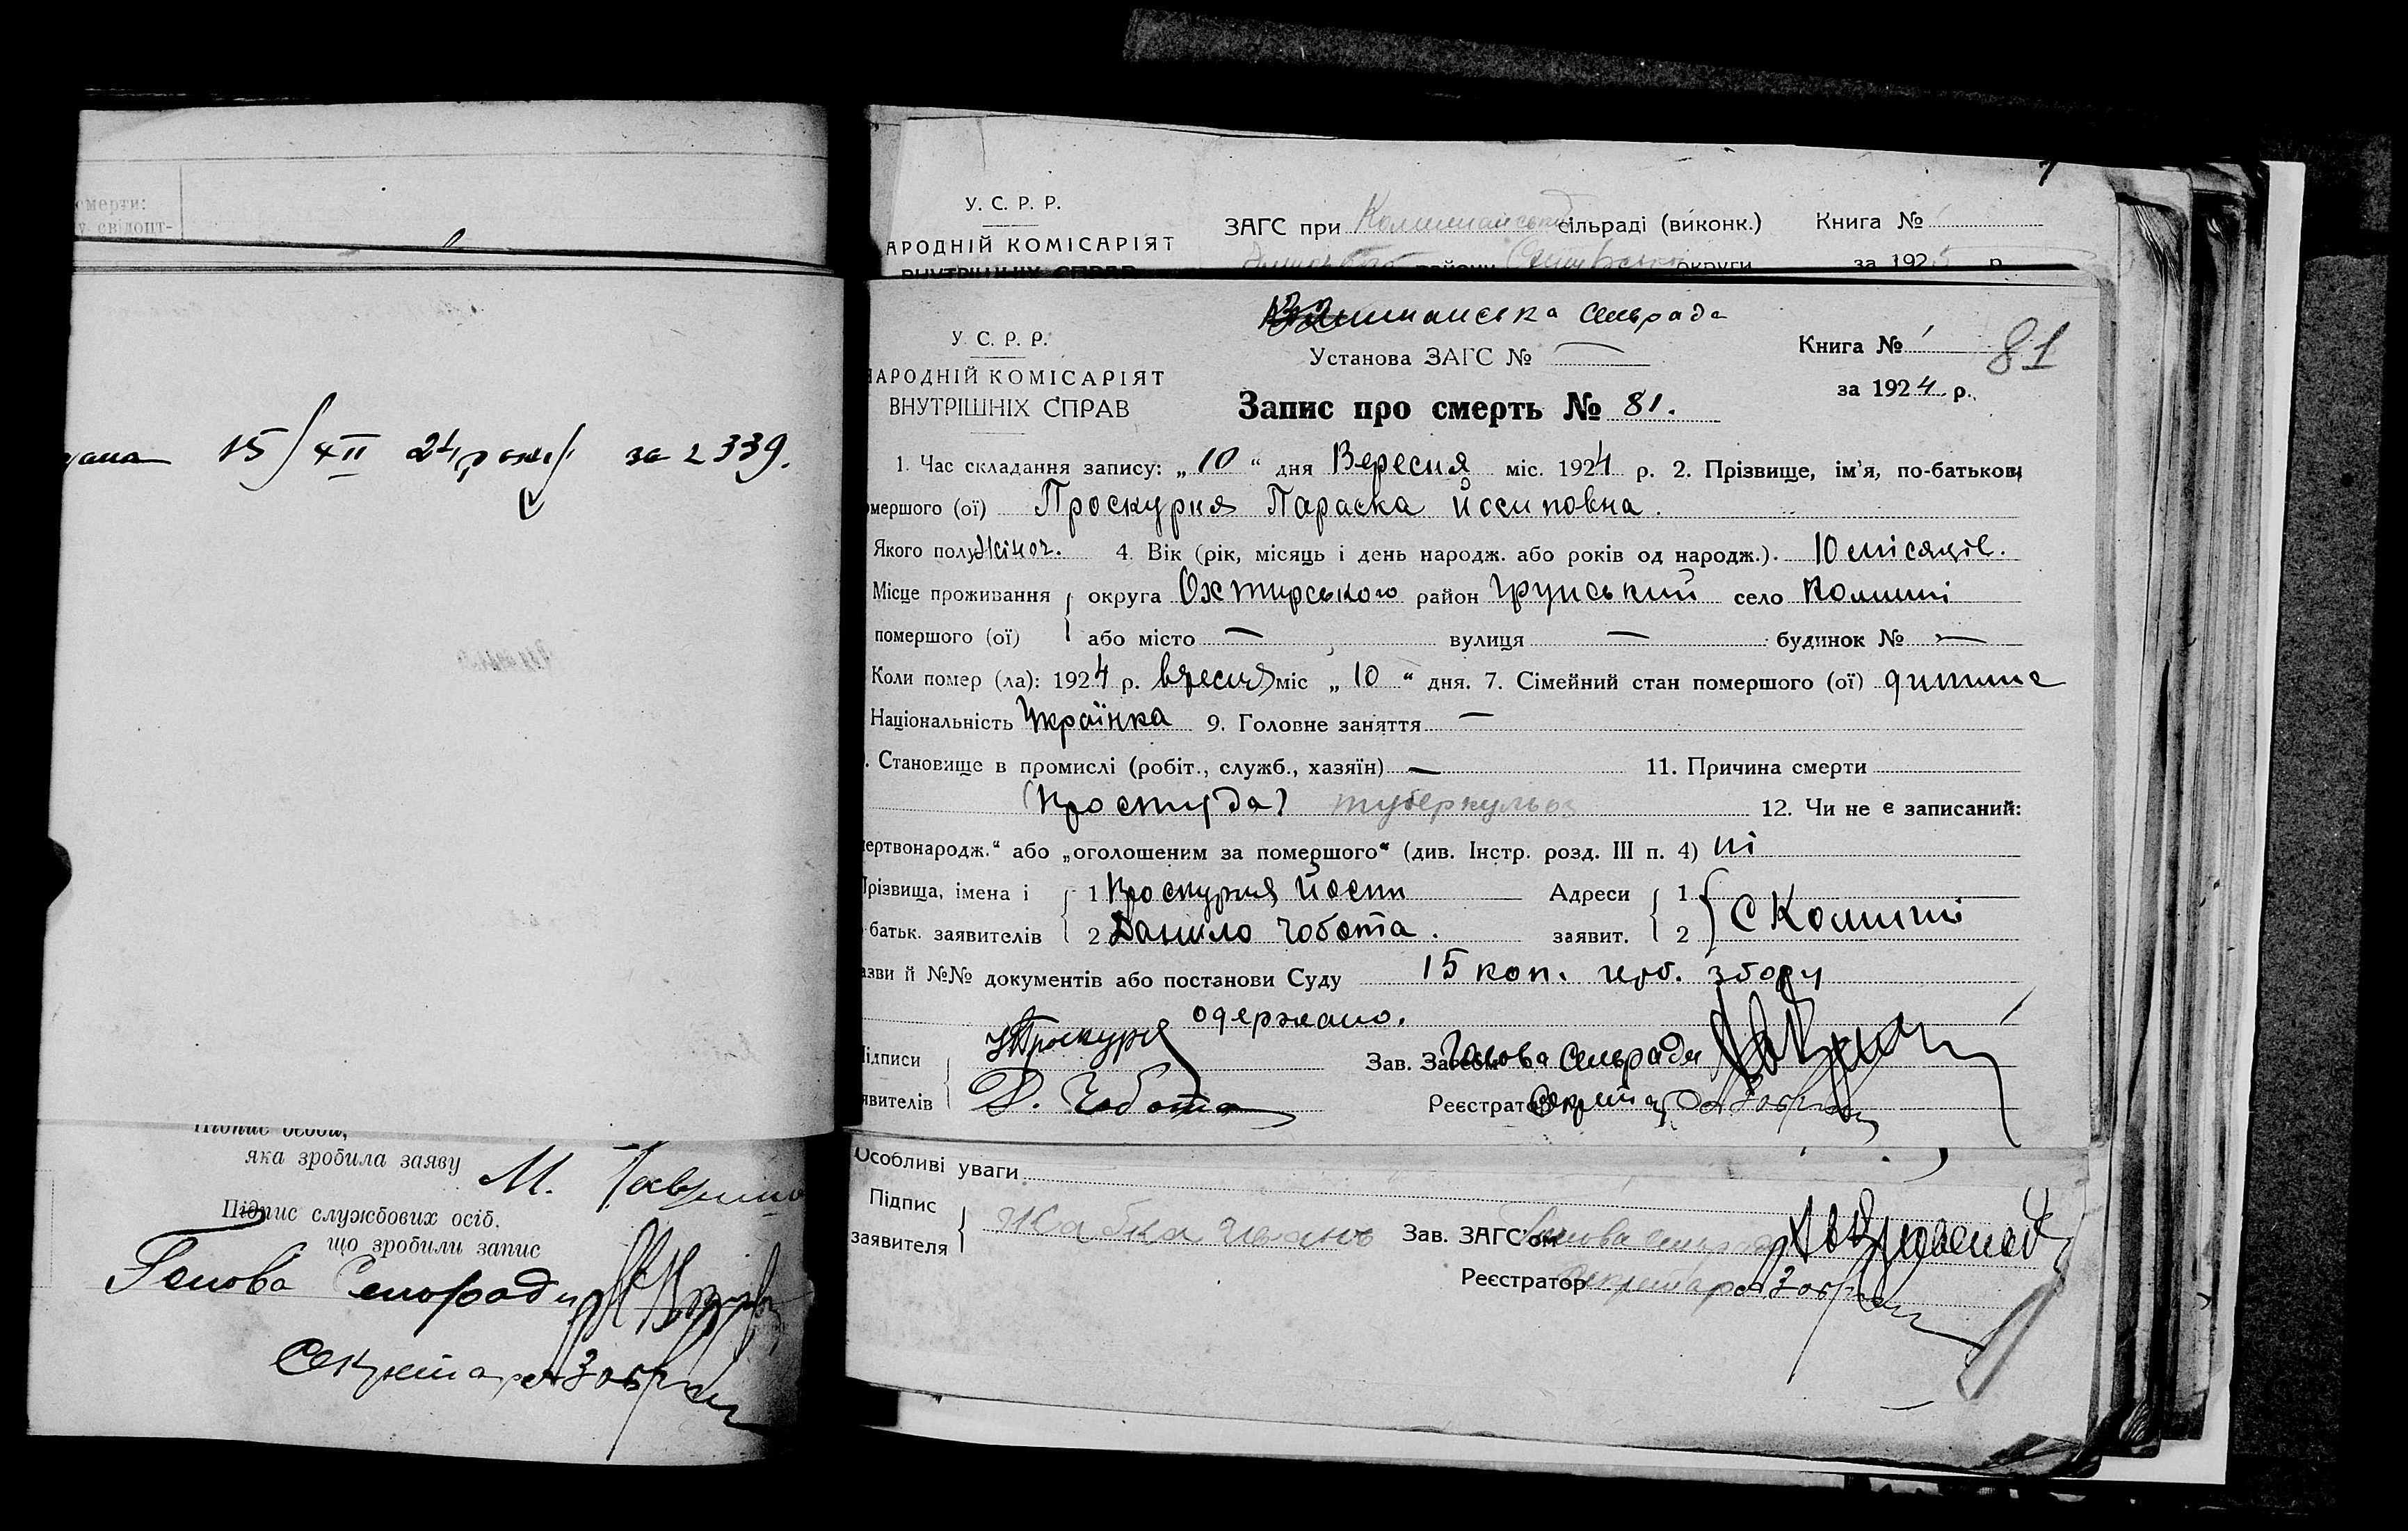 смерти:
у. свідопт-
дана 15/XII 24 року за 2339.
яка зробила заяву М.
Підпис службових осіб,
що зробили запис
Голова Сільради
Секретар
У. С. Р. Р.
АРОДНІЙ КОМІСАРІЯТ
ЗАГС при сільраді (виконк.) Книга №
району округи за 1925 р.
Сільрада
У. С. Р. Р.
НАРОДНІЙ КОМІСАРІЯТ
ВНУТРІШНІХ СПРАВ
Установа ЗАГС № —
Книга № 1
81
за 1924 р.
Запис про смерть № 81.
1. Час складання запису: „10“ дня Вересня міс. 1924 р. 2. Прізвище, ім’я, по-батькові
омершого (ої) Проскурня Параска Йосиповна.
Якого полу Жіноч. 4. Вік (рік, місяць і день народж. або років од народж.). 10 місяців.
Місце проживання округа Охтирського район Грунський село Комиші
помершого (ої) або місто — вулиця — будинок № —
Коли помер (ла): 1924 р. вресня міс „10“ дня. 7. Сімейний стан помершого (ої) дитина
Національність Українка 9. Головне заняття —
. Становище в промислі (робіт., служб., хазяїн) — 11. Причина смерти
(простуда) туберкульоз 12. Чи не є записаний:
ертвонародж.“ або „оголошеним за помершого“ (див. Інстр. розд. III п. 4) ні
Прізвища, імена і 1 Проскурня Йосип Адреси 1
батьк. заявителів 2 Данило Чобота. заявит. 2 С Комиші
азви й №№ документів або постанови Суду 15 коп. герб. збору
одержано.
Підписи Проскурня Зав. Загсом Голова Сільради
явителів Д. Чобота Реєстратор Секретар
Особливі уваги
Підпис
заявителя Жабка Иванъ Зав. ЗАГС'ом Голова
Реєстратор Секретар